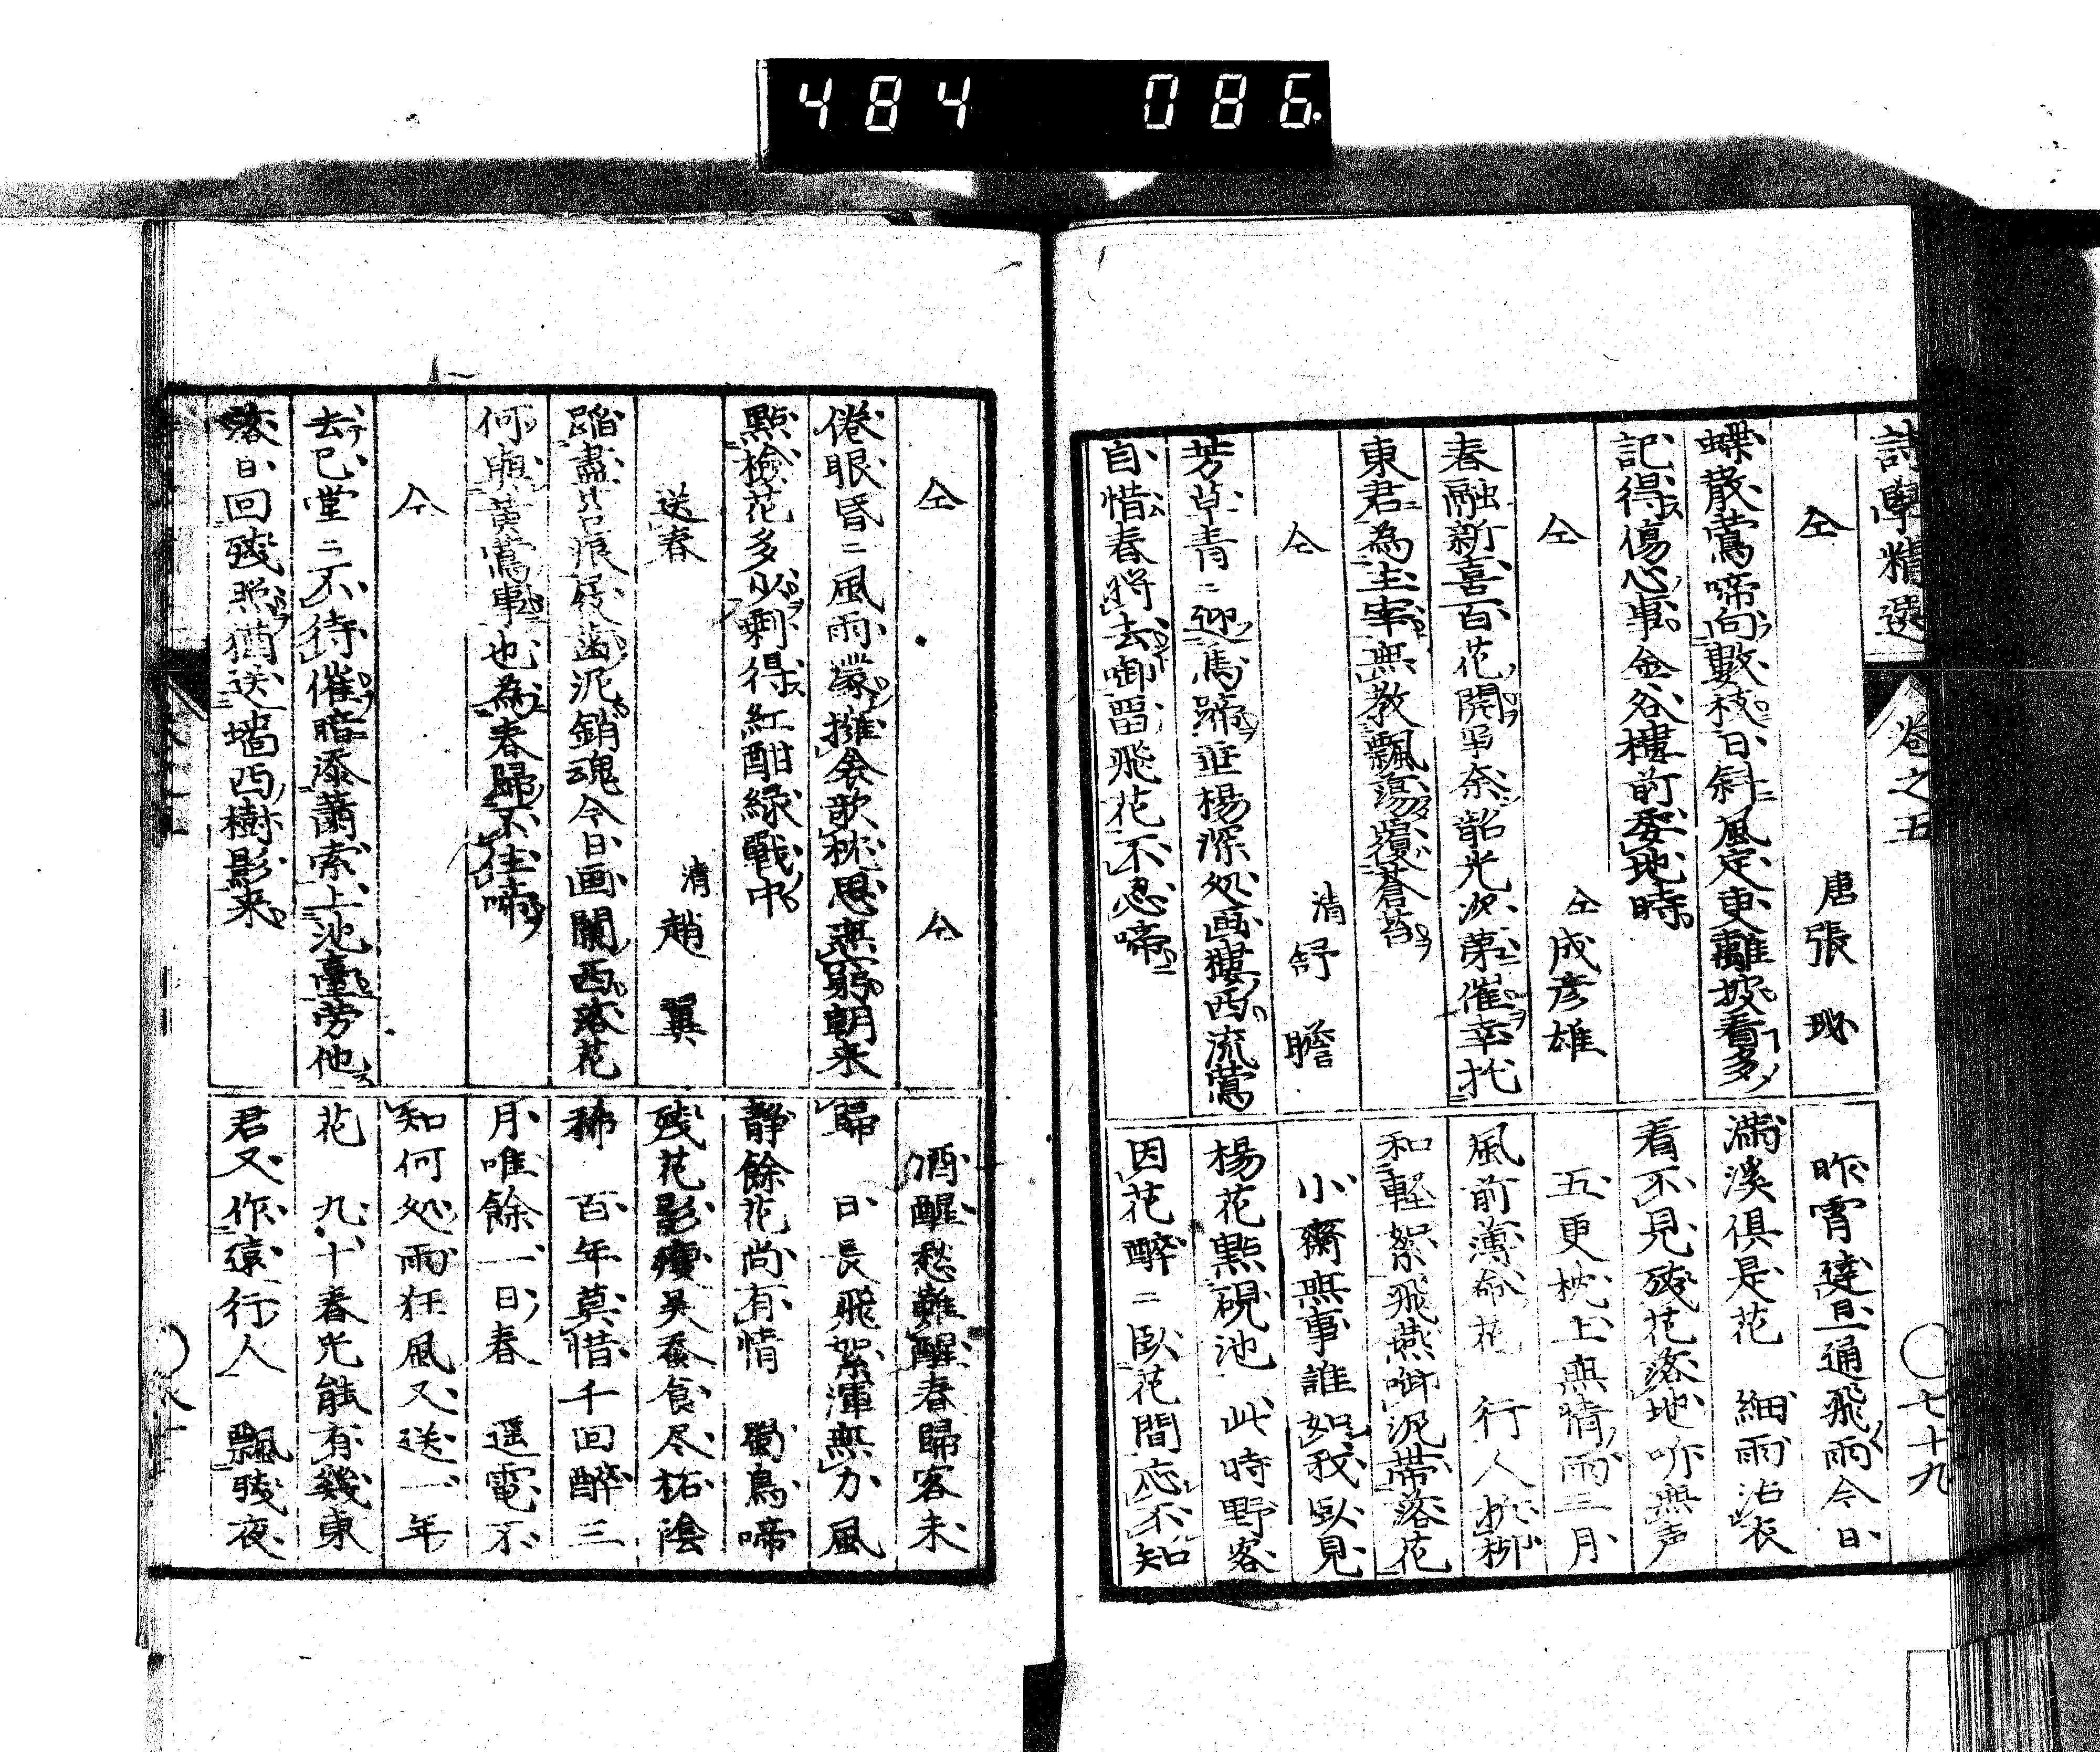 484 086.
詩學精選 卷之五 七十九
仝 唐張
蝶散鶯啼尙數枝日斜風定更離披看多
記得傷心事金谷樓前委地時
仝 仝成彦雄
春融新喜百花開爭奈韶光次第催幸托
東君為主宰無教飄蕩覆蒼苔
仝 清舒瞻
芳草青ニ迎馬蹄垂楊深処画樓西流鶯
自惜春將去啣畱飛花不忍啼
昨霄達旦通飛雨今日
滿溪俱是花 細雨沾衣
看不見殘花落地听無声
五更枕上無情雨三月
風前薄命花 行人折柳
和軽絮飛燕啣泥帯落花
小齋無事誰如我臥見
楊花點硯池 此時野客
因花醉ニ臥花間応不知
仝 仝
倦眼昏ニ風雨濛擁衾歌枕思無窮朝来
點檢花多少剩得紅酣緑戰中
送春 清趙翼
蹈盡苔痕屐歯泥銷魂今日画闌西落花
何与黄鶯事也為春歸不住啼
仝
去已堂ニ不待催暗添蕭索上池臺労他
落日回殘照猶送墻西樹影来
酒醒愁難醒春歸客未
歸 日長飛絮渾無力風
静餘花尚有情 蜀鳥啼
残花影痩吳蚕食尽柘陰
稀 百年莫惜千回醉三
月唯餘一日春 遥電不
知何処雨狂風又送一年
花 九十春光能有幾東
君又作遠行人 飄殘夜